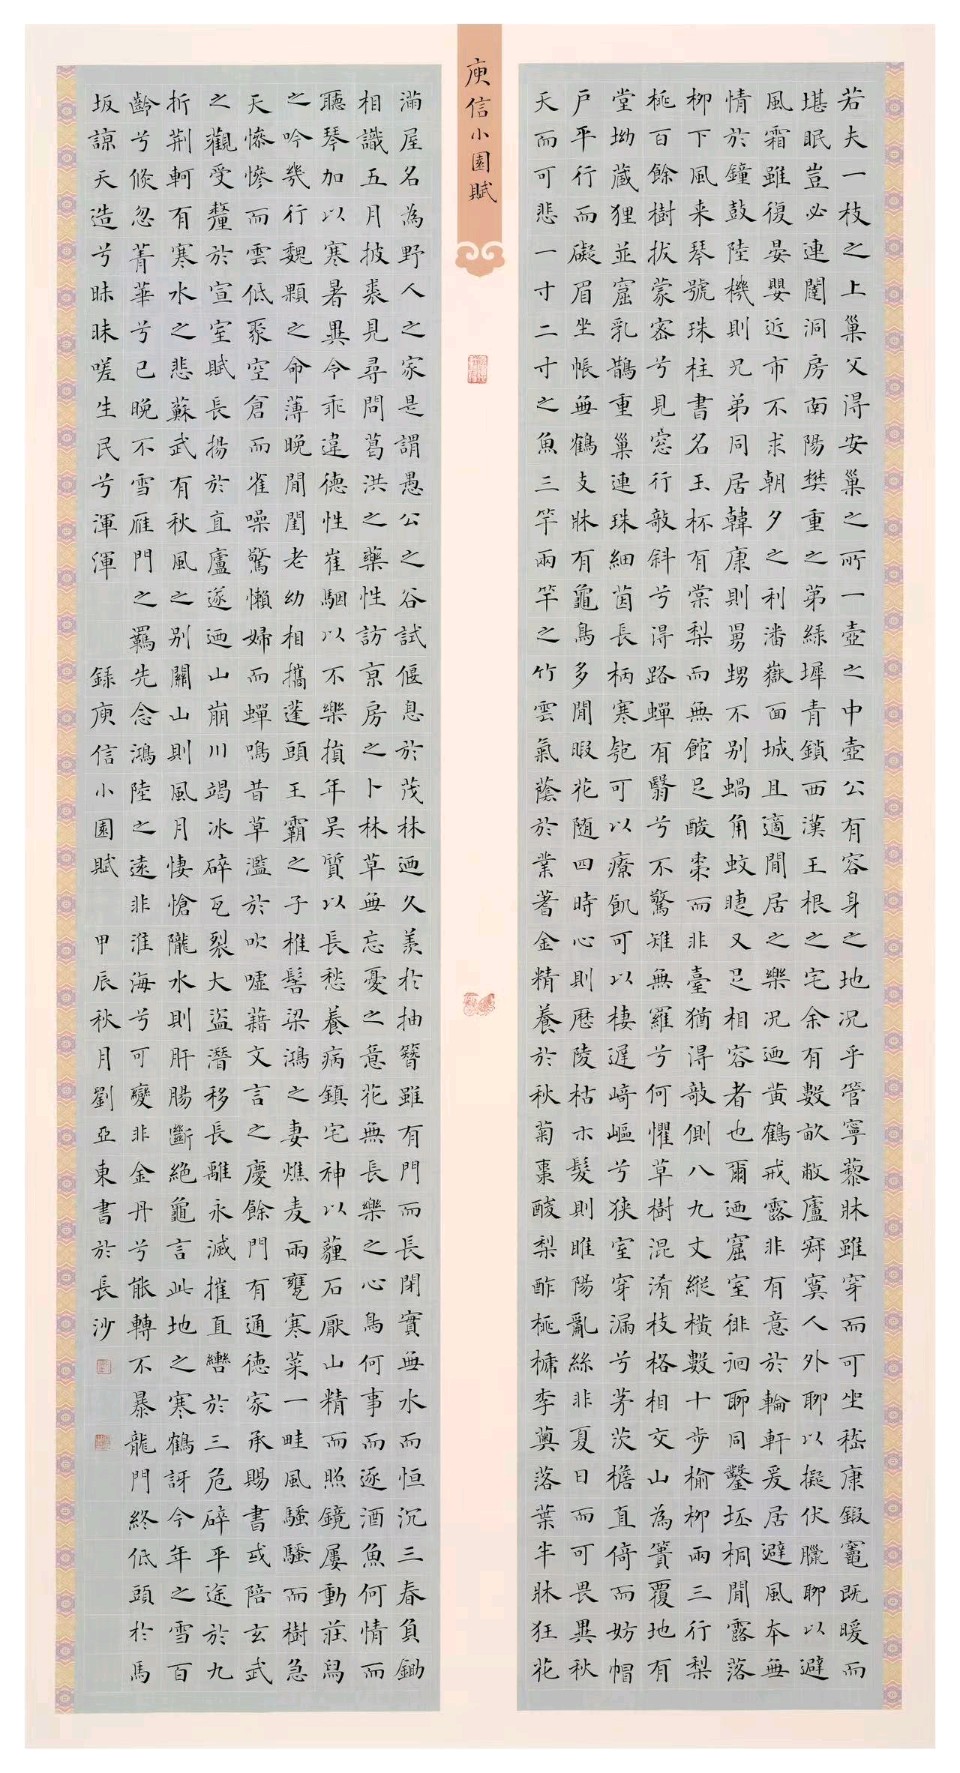 庾信小園賦
若夫一枝之上巢父得安巢之所一壺之中壺公有容身之地況乎管寧藜牀雖穿而可坐嵇康鍛竈既暖而
堪眠豈必連闥洞房南陽樊重之第綠墀青鎖西漢王根之宅余有數畝敝廬寂寞人外聊以擬伏臘聊以避
風霜雖復晏嬰近市不求朝夕之利潘嶽面城且適閒居之樂況迺黃鶴戒露非有意於輪軒爰居避風本無
情於鐘鼓陸機則兄弟同居韓康則舅甥不別蝸角蚊睫又足相容者也爾迺窟室徘徊聊同鑿坯桐間露落
柳下風来琴號珠柱書名玉杯有棠梨而無館足酸棗而非臺猶得敧側八九丈縱橫數十步榆柳兩三行梨
桃百餘樹拔蒙密兮見窓行敧斜兮得路蟬有翳兮不驚雉無羅兮何懼草樹混淆枝格相交山為簣覆地有
堂坳藏狸並窟乳鵲重巢連珠細茵長柄寒匏可以療飢可以棲遲崎嶇兮狹室穿漏兮茅茨檐直倚而妨帽
戶平行而礙眉坐帳無鶴支牀有龜鳥多閒暇花随四時心則歷陵枯木髮則睢陽亂絲非夏日而可畏異秋
天而可悲一寸二寸之魚三竿兩竿之竹雲氣蔭於叢蓍金精養於秋菊棗酸梨酢桃榹李薁落葉半牀狂花
滿屋名為野人之家是謂愚公之谷試偃息於茂林迺久羨於抽簪雖有門而長閉實無水而恒沉三春負鋤
相識五月披裘見尋問葛洪之藥性訪京房之卜林草無忘憂之意花無長樂之心鳥何事而逐酒魚何情而
聽琴加以寒暑異令乖違德性崔駰以不樂損年吳質以長愁養病鎮宅神以薶石厭山精而照鏡屢動莊舄
之吟幾行魏顆之命薄晚閒閨老幼相攜蓬頭王霸之子椎髻梁鴻之妻燋麦兩甕寒菜一畦風騷騷而樹急
天慘慘而雲低聚空倉而雀噪驚懶婦而蟬鳴昔草濫於吹噓藉文言之慶餘門有通德家承賜書或陪玄武
之觀受釐於宣室賦長揚於直廬遂迺山崩川竭冰碎瓦裂大盜潛移長離永滅摧直轡於三危碎平途於九
折荊軻有寒水之悲蘇武有秋風之別關山則風月悽愴隴水則肝腸斷絕龜言此地之寒鶴訝今年之雪百
齡兮倐忽菁華兮已晚不雪雁門之羈先念鴻陸之遠非淮海兮可變非金丹兮能轉不暴龍門終低頭於馬
坂諒天造兮昧昧嗟生民兮渾渾 錄庾信小園賦 甲辰秋月劉亞東書於長沙